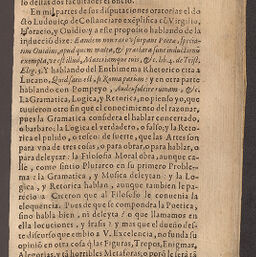 lo dellas dos facultades el officio.
En mil partes de sus disputaciones oratorias el docto
Ludouico de Costanciaro exéplifica cõ Virgilio,
Horacio, y Ouidio; y a este proposito hablando de la
induccion dize: Eandem non raro vsurpant Poetæ,
Ouidius, apud quem multa, & præclara sunt inductionis
exempla, vt est illud, & c. lib. 4. de Trist.
Eleg. 3. Y hablando del Enthimema Rhetorico cita a
Lucano, y en otra parte
hablando con Pompeyo, & c.
La Gramatica, Logica, y Retorica, no pienso yo, que
tuuieron otro fin que el conocimiento de razonar,
pues la Gramatica considera el hablar concertado,
o barbaro; la Logica el verdadero, o falso; y la Retorica
el pulido, o tosco; de suerte, que las Artes son
para vna de tres cosas, o para obrar, o para hablar, o
para deleytar: la Filosofia Moral obra, aunque calle,
como sintio Plutarco en su primer Problema;
la Gramatica, y Musica deleytan: y la Logica,
y Retorica hablan, aunque tambien le parecio
a Ciceron que al Filosofo le conuenia la
eloquencia. Pues de que se compondra la Poetica,
sino habla bien, ni deleyta? o que llamamos en
ella locuciones, y frasis? y mas que el dueño deste
discurso que embio a V. Excelencia, no funda su
opinió en otra cosa q̃ las Figuras, Tropos, Enigmas,
Alegorias, y tá horribles Metaforas, o poro le sera tá